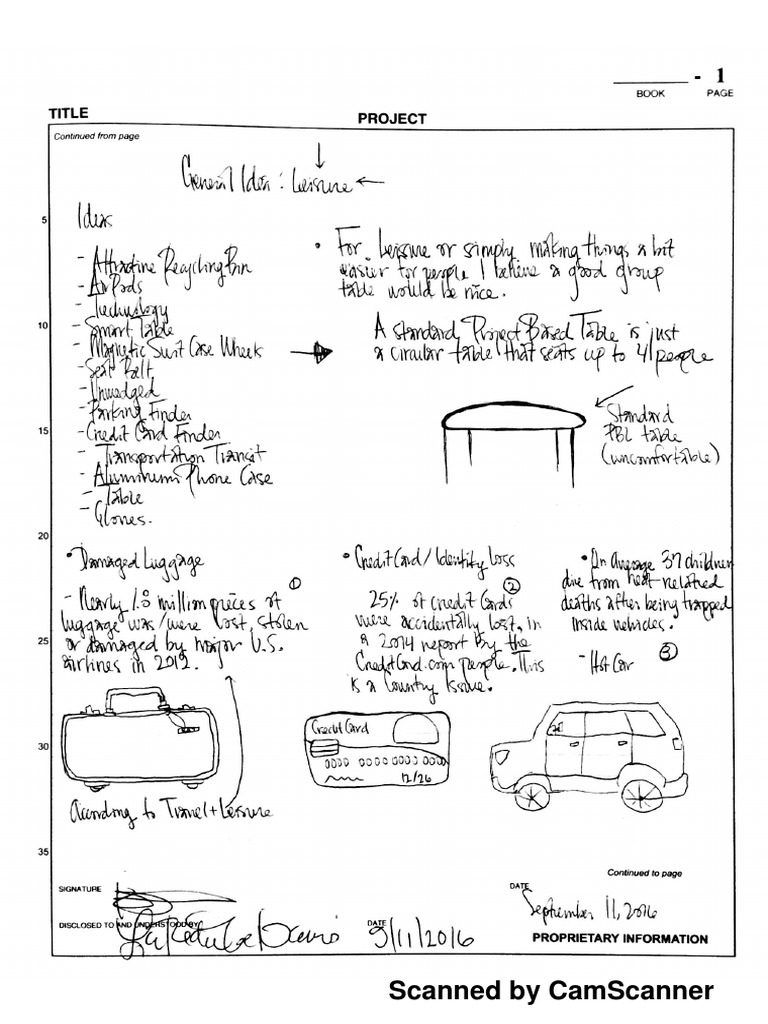 - 1
BOOK PAGE
TITLE
PROJECT
Continued from page
General Idea : Leisure
Ideas
- Attractive Recycling Bin
- AirPods
- Technology
- Smart Table
- Magnetic Suit Case Wheels
- Seat Belt
- Unwedged
- Parking Finder
- Credit Card Finder
- Transportation Transit
- Aluminum Phone Case
- Table
- Gloves.
• For Leisure or simply making things a bit
easier for people I believe a good group
table would be nice.
A standard Project Based Table is just
a circular table that seats up to 4 people
Standard
PBL table
(uncomfortable)
5
10
15
20
25
30
35
• Damaged Luggage
①
- Nearly 1.8 million pieces of
luggage was/were lost, stolen
or damaged by major U.S.
airlines in 2012.
According to Travel+Leisure
• Credit Card/Identity Loss
②
25% of credit cards
were accidentally lost, in
a 2014 report by the
CreditCard.com people. This
is a Country Issue.
Credit Card
0000 0000 0000 0000
12/26
• On Average 37 children
die from heat-related
deaths after being trapped
inside vehicles.
- Hot Car ③
Continued to page
SIGNATURE
DATE
September 11, 2016
DISCLOSED TO AND UNDERSTOOD BY
DATE
9/11/2016
PROPRIETARY INFORMATION
Scanned by CamScanner